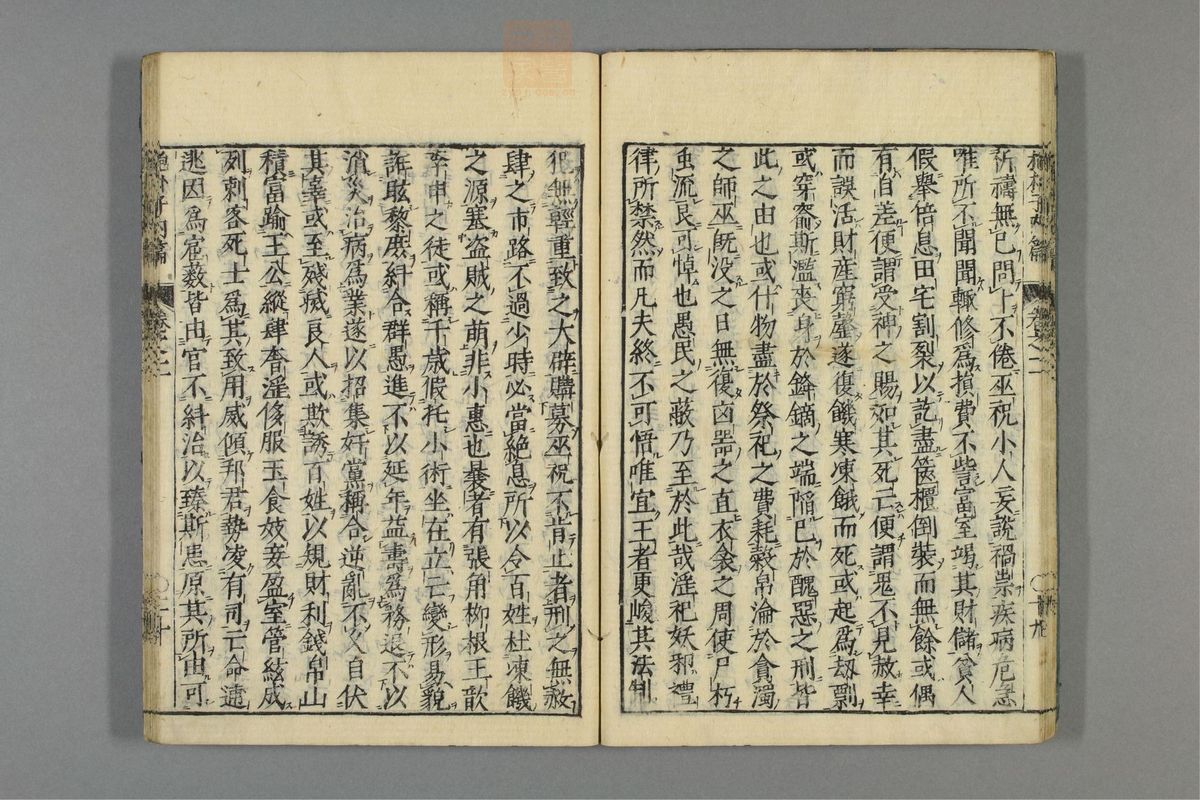 祈禱無已問卜不倦巫祝小人妄說禍祟疾病危急
唯所不聞聞輙修爲損費不訾富室竭其財儲貧人
假舉倍息田宅割裂以訖盡篋櫃倒裝而無餘或偶
有自差便謂受神之賜如其死亡便謂鬼不見赦幸
而誤活財産窮罄遂復饑寒凍餓而死或起爲刼剽
或穿窬斯濫喪身於鋒鏑之端陷已於醜惡之刑皆
此之由也或什物盡於祭祀之費耗穀帛淪於貪濁
之師巫旣没之日無復凶噐之直衣衾之周使尸朽
虫流良可悼也愚民之蔽乃至於此哉淫祀妖邪禮
律所禁然而凡夫終不可悟唯宜王者更峻其法制
犯無輕重致之大辟購募巫祝不肯止者刑之無赦
肆之市路不過少時必當絕息所以令百姓杜凍饑
之源塞盗賊之萌非小惠也曩者有張角栁根王歆
李申之徒或稱千歲假托小術坐在立亡變形易貌
誑眩黎庶糾合群愚進不以延年益壽爲務退不以
消災治病爲業遂以招集奸黨稱合逆亂不久自伏
其辜或至殘滅良人或欺誘百姓以規財利錢帛山
積富踰王公縱肆奢淫侈服玉食妓妾盈室管絃成
列刺客死士爲其致用威傾邦君勢凌有司亡命逋
逃因爲窟藪皆由官不糾治以臻斯患原其所由可
卷之二